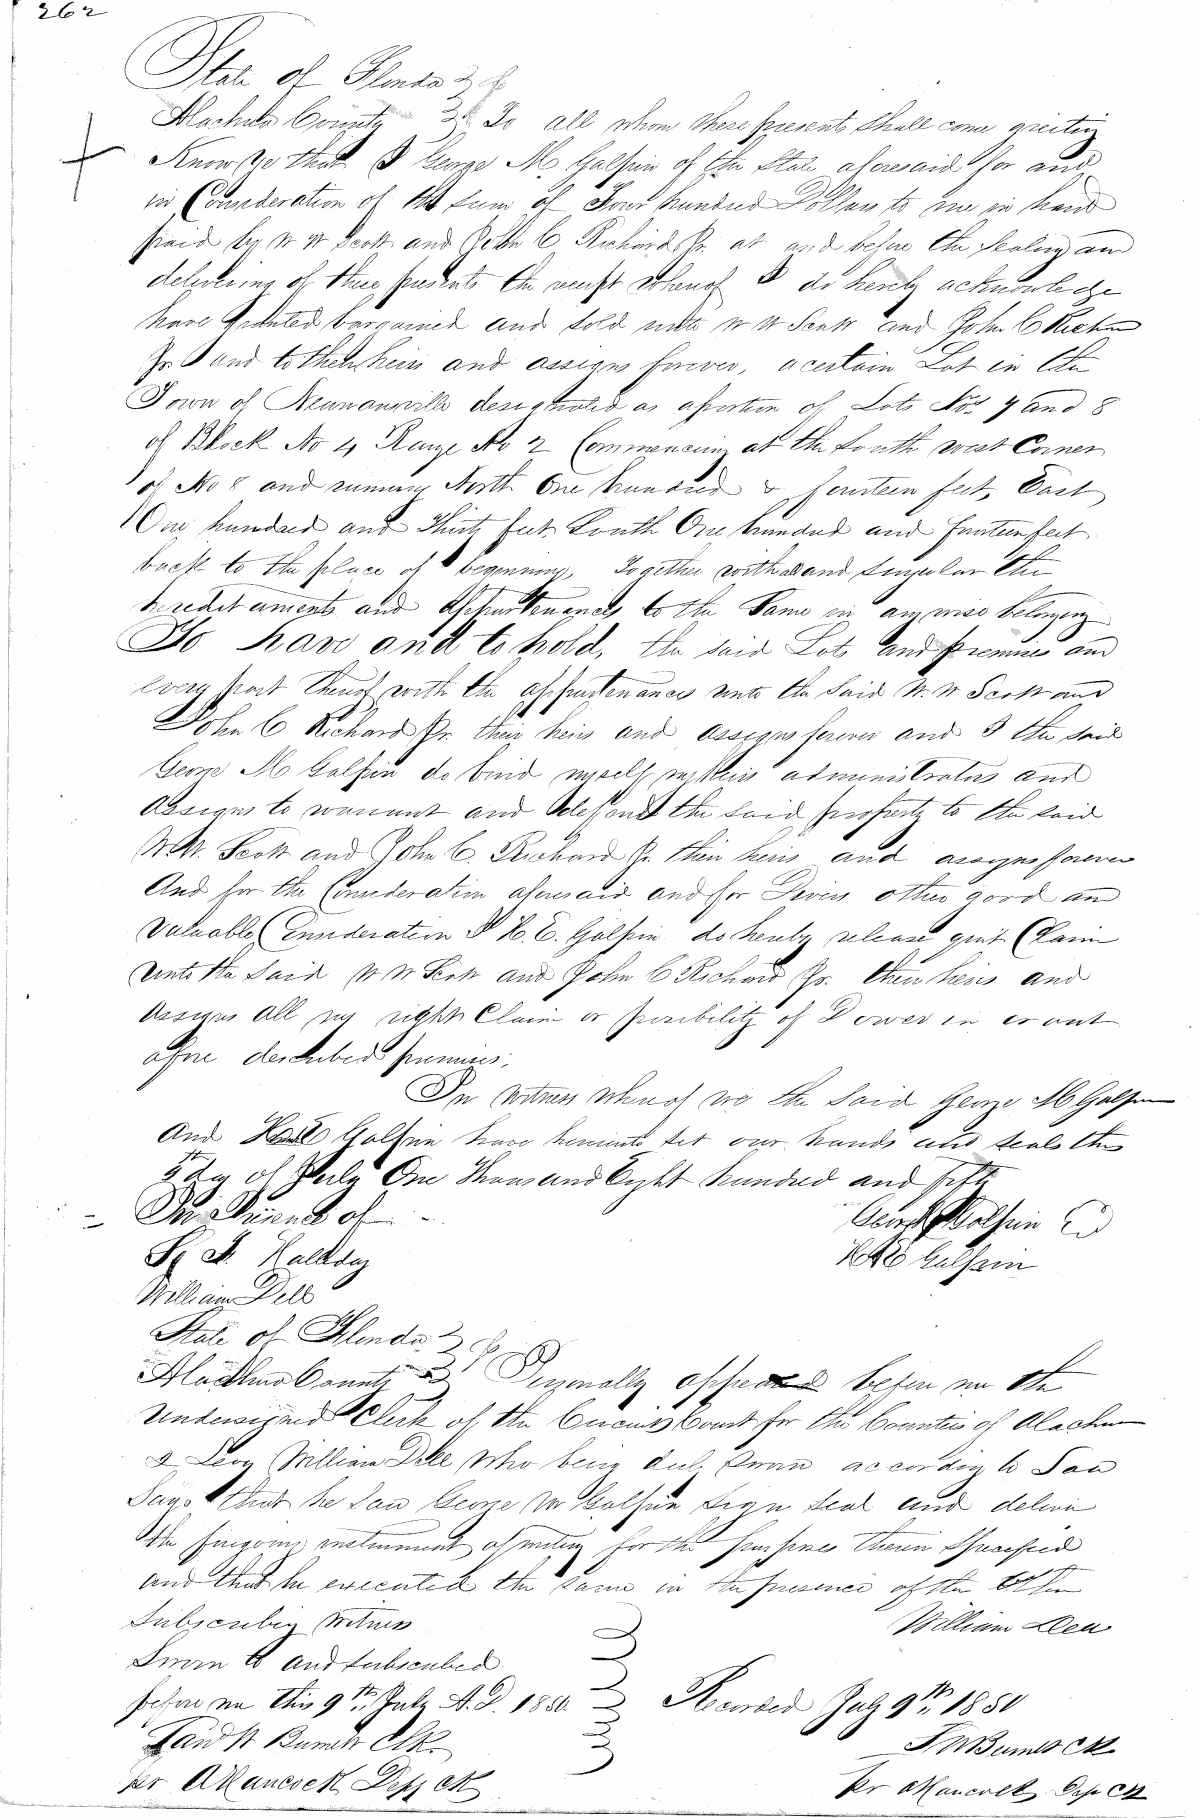 262
State of Florida
Alachua County To all whom these presents shall come greeting
Know Ye that I George M Galphin of the State aforesaid for and
in Consideration of the sum of Four hundred Dollars to me in hand
paid by W W Scott and John C Richard Jr. at and before the Sealing and
delivering of these presents the receipt whereof I do hereby acknowledge
have Granted bargained and sold unto W W Scott and John C Richard
Jr and to their heirs and assigns forever, a certain Lot in the
Town of Newnansville designated as a portion of Lots Nos. 7 and 8
of Block No 4 Range No 2 Commencing at the South west Corner
of No 8 and running North One hundred & fourteen feet, East
One hundred and Thirty feet South One hundred and fourteen feet
back to the place of beginning, Together with all and singular the
hereditaments and appurtenances to the Same in any wise belonging
To have and to hold, the said Lots and premises and
every part thereof with the appurtenances unto the Said W. W Scott and
John C Richard Jr. their heirs and assigns forever and I the said
George M Galphin do bind myself my heirs administrators and
assigns to warrant and defend the said property to the said
W. W. Scott and John C. Richard Jr. their heirs and assigns forever
And for the Consideration aforesaid and for Divers other good and
valuable Consideration I H. E. Galphin do hereby release quit Claim
unto the Said W W Scott and John C Richard Jr. their heirs and
assigns all my right Claim or possibility of Dower in or out
afore described premises.
In witness whereof we the Said George M Galphin
And Galphin have hereunto set our hands and seals this
day of July One Thousand Eight hundred and fifty
In Presence of
George M Galphin
Halliday
Galphin
William Dell
State of Florida
Alachua County Personally appeared before me the
Undersigned Clerk of the Circuit Court for the Counties of Alachua
& Levy William Dell who being duly sworn according to Law
Says that he Saw George M Galphin Sign Seal and deliver
the foregoing instrument of writing for the purposes therein Specified
and that he executed the same in the presence of the other
Subscribing Witness
William Dell
Sworn to and subscribed
before me this 9th. July A. D. 1850.
Recorded July 9th, 1850
Burnett Clk.
Burnett Ck
per A Hancock Dep Ck
per A Hancock Dep Ck